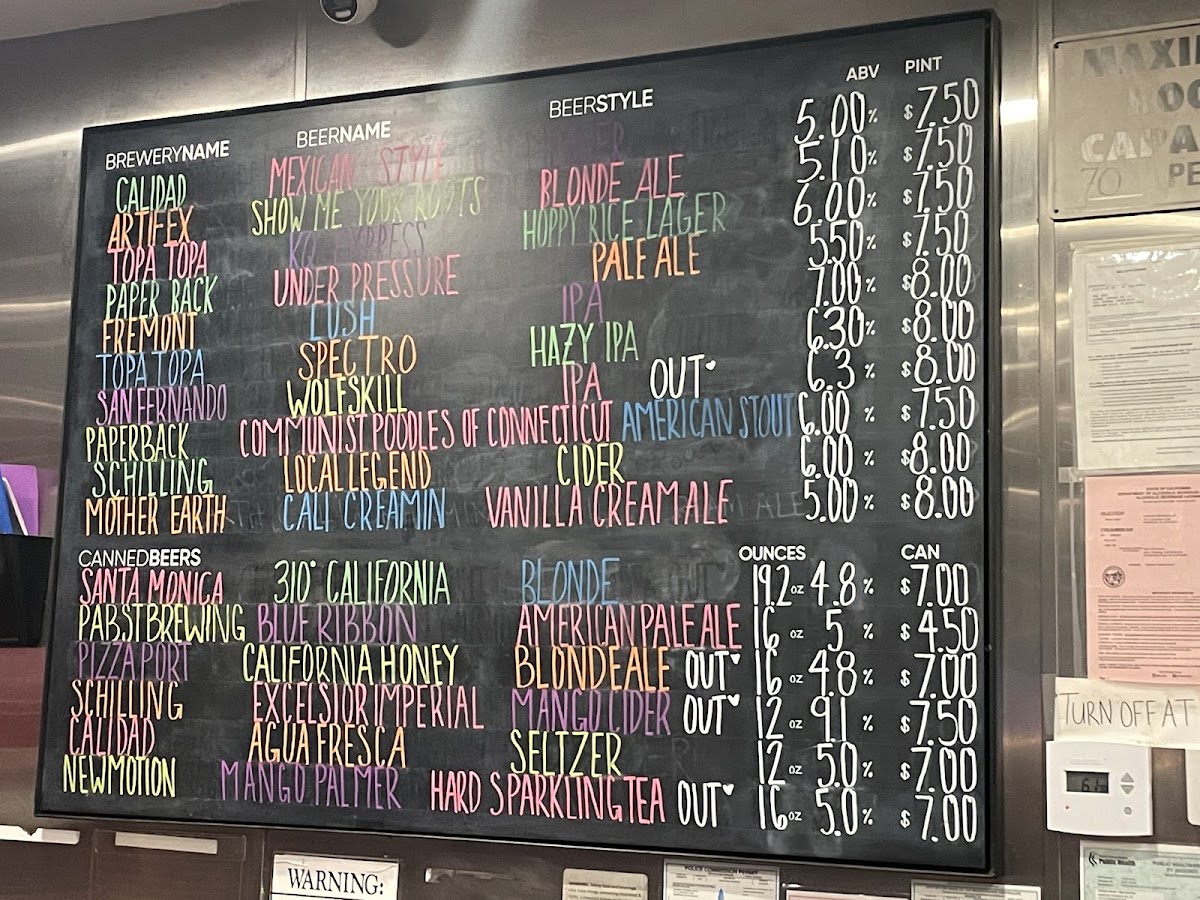 BREWERYNAME BEERNAME BEERSTYLE ABV PINT
CALIDAD MEXICAN STYLE 5.00% $7.50
ARTIFEX SHOW ME YOUR ROOTS BLONDE ALE 5.10% $7.50
TOPA TOPA HOPPY RICE LAGER 6.00% $7.50
PAPER BACK UNDER PRESSURE PALE ALE 5.50% $7.50
FREMONT LUSH IPA 7.00% $8.00
TOPA TOPA SPECTRO HAZY IPA 6.30% $8.00
SAN FERNANDO WOLFSKILL IPA OUT 6.3% $8.00
PAPERBACK COMMUNIST POODLES OF CONNECTICUT AMERICAN STOUT 6.00% $7.50
SCHILLING LOCAL LEGEND CIDER 6.00% $8.00
MOTHER EARTH CALI CREAMIN VANILLA CREAM ALE 5.00% $8.00
CANNEDBEERS OUNCES CAN
SANTA MONICA 310° CALIFORNIA BLONDE 19.2oz 4.8% $7.00
PABST BREWING BLUE RIBBON AMERICAN PALE ALE 16oz 5% $4.50
PIZZA PORT CALIFORNIA HONEY BLONDE ALE OUT 16oz 4.8% $7.00
SCHILLING EXCELSIOR IMPERIAL MANGO CIDER OUT 12oz 9.1% $7.50
CALIDAD AGUA FRESCA SELTZER 12oz 5.0% $7.00
NEWMOTION MANGO PALMER HARD SPARKLING TEA OUT 16oz 5.0% $7.00
70
TURN OFF AT
WARNING:
Public Health